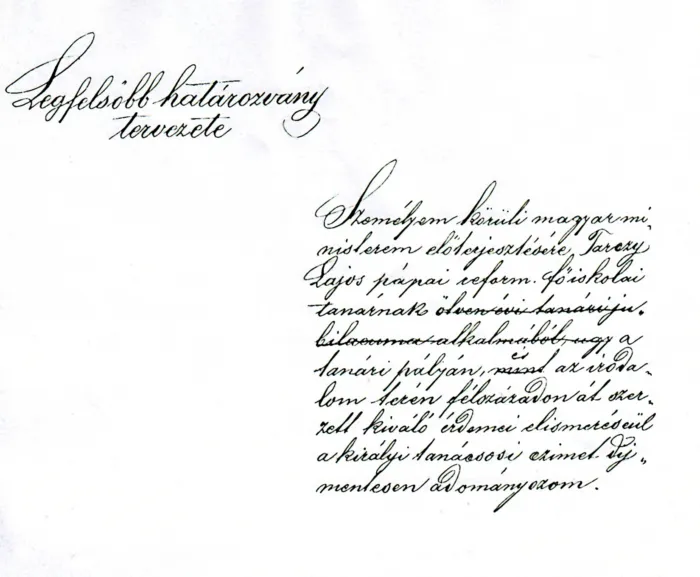 Legfelsőbb határozvány
tervezete
Személyem körüli magyar mi„
nisterem előterjesztésére Tarczy
Lajos pápai reform. főiskolai
tanárnak ötven évi tanári ju„
bilaeuma alkalmából, ugy a
tanári pályán, mint és az iroda„
lom terén félszázadon át szer„
zett kiváló érdemei elismeréséül
a királyi tanácsosi czimet díj„
mentesen adományozom.